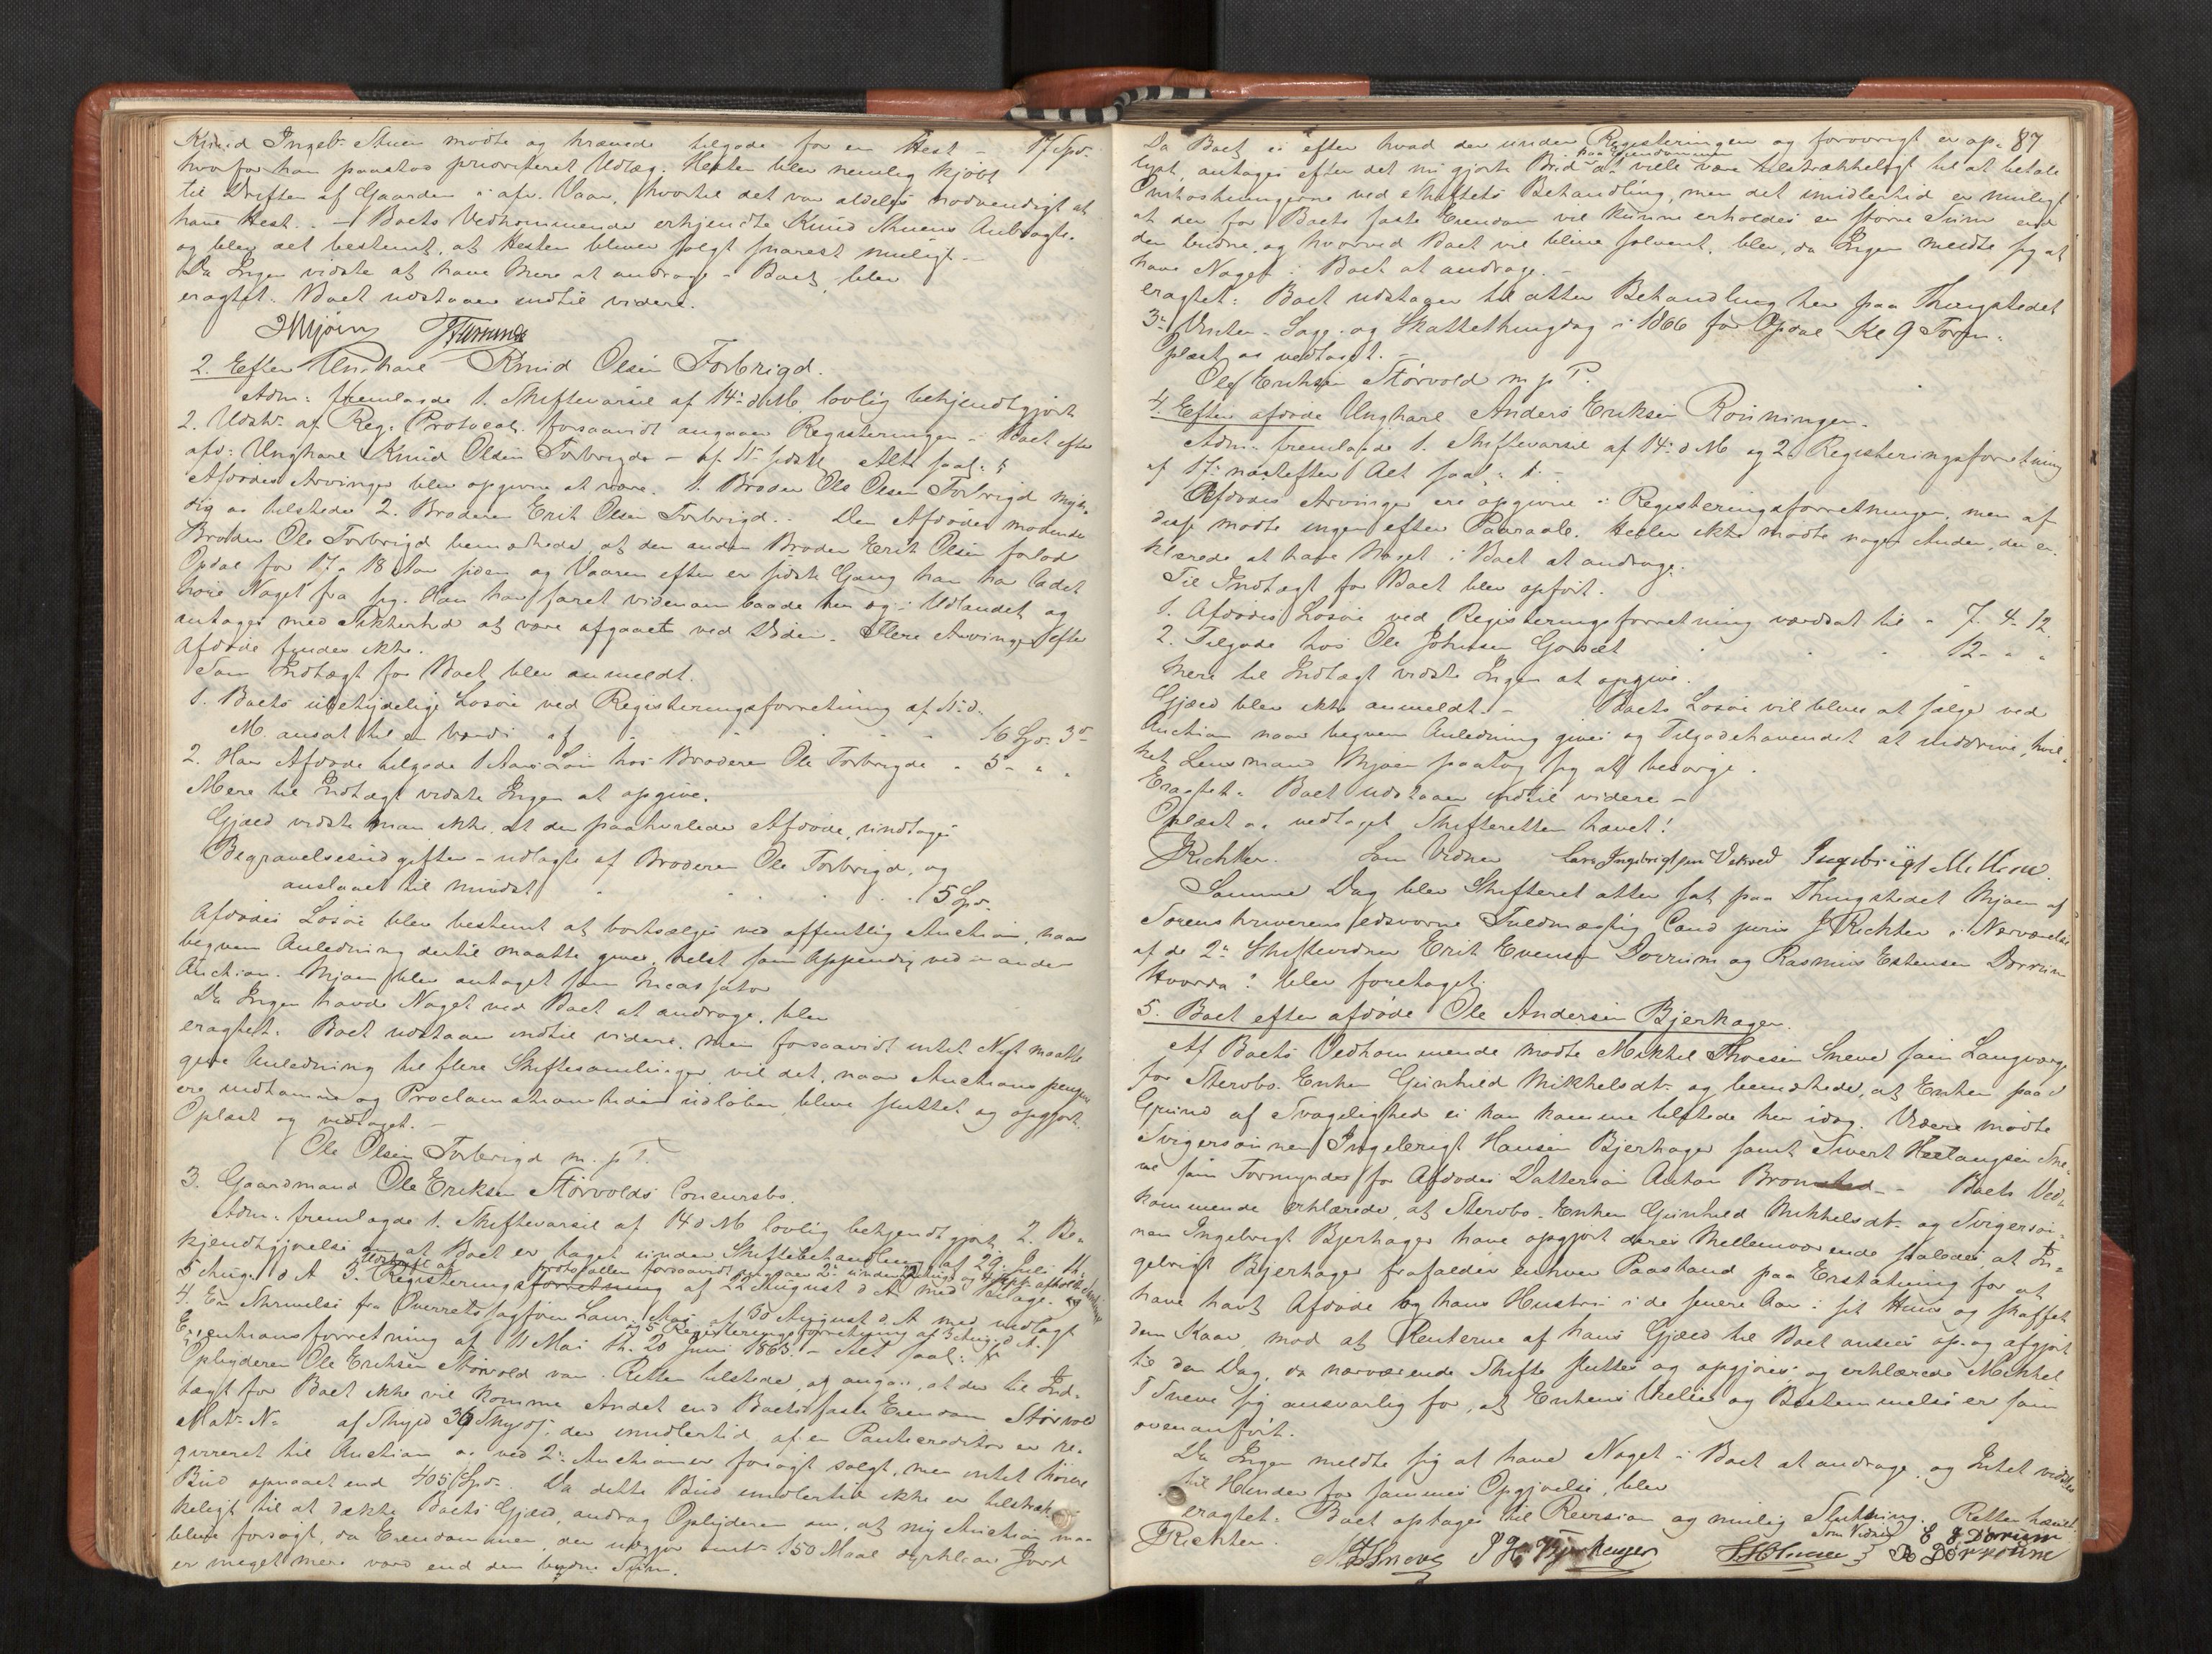 Knud Ingebr. Stuen mødte og krævede tilgode for en Hest - 17 Spd.
hvorfor han paastod prioriteret Udlæg. Hesten blev nemlig kjøbt
til Driften af Gaarden i afv. Vaar, hvortil det var aldeles nødvendigt at
have Hest. - Boets Vedkommende erkjendte Knud Stuens Anbragte.
og blev det bestemt, at Hesten bliver solgt snarest muligt. -
Da Ingen vidste at have Mere at andrage i Boet, blev
eragtet. Boet udstaaer indtil videre.
2. Efter Ungkarl Knud Olsen Forbrigd.
Adm: fremlagde 1. Skiftevarsel af 14de d M. lovlig bekjendtgjort
2. Udskr. af Reg. Protocol. forsaavidt angaaer Registeringen i Boet efter
afd: Ungkarl Knud Olsen Forbrigd - af sidstl. Alts saal:
Afdødes Arvinger blev opgivne at være. 1. Broder Ole Olsen Forbrigd myn-
dig og tilstede 2. Broderen Erik Olsen Forbrigd. - Den Afdødes mødende
Broder Ole Forbrigd bemærkede, at den anden Broder Erik Olsen forlod
Opdal for 17 a 18 Aar siden og Vaaren efter er sidste Gang han har ladet
høre Noget fra sig. Han har faret videnom baade her og i Udlandet og
antages med Sikkerhed at være afgaaet ved Døden. Flere Arvinger efter
Afdøde fandes ikke.
Som Indtægt for Boet blev anmeldt.
1. Boets ubetydelige Løsøre ved Registeringsforretning af d.
M. ansat til en Værdi af - 16 Spd. 3 -
2. Har Afdøde tilgode 1 Aars Løn hos Broderen Ole Forbrigd - 5 - " "
Mere til Indtægt vidste Ingen at opgive.
Gjæld vidste man ikke, at der paahvilede Afdøde, undtagen
Begravelsesudgifter - udlagte af Broderen Ole Forbrigd, og
anslaaet til mindst 15 Spd.
Afdødes Løsøre blev bestemt at bortsælges ved offentlig Auction, naar
beqvem Anledning dertil maatte gives, helst som Appendix ved en anden
Auction. Mjøen blev antaget som Incassator
Da Ingen havde Noget ved Boet at andrage, blev
eragtet. Boet udstaaer indtil videre, men forsaavidt intet Nyt maatte
give Anledning til flere Skiftesamlinger, vil det, naar Auctionspengene
ere indkomne og Proclamationstiden udløben, blive sluttet og opgjort.
Oplæst og vedtaget. -
Ole Olsen Forbrigd m. p. P.
3. Gaardmand Ole Eriksen Størvolds Concursbo.
Adm: fremlagde 1. Skiftevarsel af 14 d M. lovlig bekjendtgjort, 2. Be-
kjendtgjørelse om at Boet er taget under Skiftebehandling af 29 Juli
5 Aug. d A 3. Registeringsforretning af 22 August d A. med Bilage. og
4. En Skrivelse fra Overretssagfører Laur. May af 30 August d. A. med vedlagt
og 5 Registeringsforretning af 3 Aug. d. A.
Executionsforretning af 11 Mai 20 Juni 1865. - Alt saal:
Opbyderen Ole Eriksen Størvold var i Retten tilstede, og angav, at der til Ind-
tægt for Boet ikke vil komme Andet end Boets faste Eiendom Størvold
Matr. No af Skyld 36 Skyss;. der imidlertid af en Pantecreditor er re-
qvireret til Auction og ved 2de Auctioner forsøgt solgt, men intet høiere
Bud opnaaet end 405 Spd. Da dette Bud imidlertid ikke er tilstræk-
keligt til at dække Boets Gjæld, androg Opbyderen om, at ny Auction maa
blive forsøgt, da Eiendommen, der udgjør omtr. 150 Maal dyrkbar Jord
er meget mere værd end den budne Sum.
87
Da Boet ei efter hvad der under Registeringen og forøvrigt er op-
lyst, antages efter det nu gjorte Bud paa Eiendommen at ville være tilstrækkeligt til at betale
Omkostningerne ved Skiftets Behandling, men det imidlertid er muligt
at der for Boets faste Eiendom vil kunne erholdes en større Sum end
den budne, og hvorved Boet vil blive solvent, blev, da Ingen meldte sig at
have Noget i Boet at andrage. -
eragtet: Boet udstaaer til atter Behandling her paa Thingstedet
3die Vinter-Sage- og Skattethingdag i 1866 for Opdal Kl 9 Form.
Oplæst og vedtaget. -
Ole Eriksen Størvold m. p. P.
4. Efter afdøde Ungkarl Anders Eriksen Rønningen.
Adm: fremlagde 1. Skiftevarsel af 14: d M. og 2. Registeringsforretning
af 17: næstefter Alt saal:
Afdødes Arvinger ere opgivne i Registeringsforretningen, men af
disse mødte ingen efter Paaraab. Heller ikke mødte nogen Anden, der er-
klærede at have Noget i Boet at andrage.
Til Indtægt for Boet blev opført.
1. Afdødes Løsøre ved Registeringsforretning værdsat til - 7. 4. 12.
2. Tilgode hos Ole Johnsen Gorsæt 12 - " "
Mere til Indtægt vidste Ingen at opgive.
Gjæld blev ikke anmeldt. - Boets Løsøre vil blive at sælge ved
Auction naar beqvem Anledning gives og Tilgodehavendet at inddrive, hvil-
ket Lensmand Mjøen paatog sig at besørge.
Eragtet. Boet udstaaer indtil videre -
Oplæst og vedtaget Skifteretten hævet!
JRichter. Som Vidner Lars Ingebrigtsen Ingebrigt M.
Samme Dag blev Skifteret atter sat paa Thingstedet Mjøen af
Sorenskriverens edsvorne Fuldmægtig Cand juris J Richter i Nærværelse
af de 2de Skiftevidner Erik Evensen Dørrum og Rasmus Estensen Dørrum
Hvorda: blev foretaget.
5. Boet efter afdøde Ole Andersen Bjerkager.
Af Boets Vedkommende mødte Mikkel Thoesen Sneve som Laugværge
for Stervbo-Enken Gunhild Mikkelsdtr. og bemærkede, at Enken paa
Grund af Svagelighed ei kan komme tilstede her idag. Videre mødte
Svigersønnen Ingebrigt Hansen Bjerkager samt Sivert Sne-
ve som Formynder for Afdødes Dattersøn Anton - Boets Ved-
kommende erklærede, at Stervbo-Enken Gunhild Mikkelsdtr. og Svigersøn-
nen Ingebrigt Bjerkager have opgjort deres Mellemværende saaledes, at In-
gebrigt Bjerkager frafalder enhver Paastand paa Erstatning for at
have havt Afdøde og hans Hustru i de senere Aar i sit Huus og skaffet
dem Kaar, mod at Renterne af hans Gjæld til Boet ansees op- og afgjort
til den Dag, da nærværende Skifte sluttes og opgjøres; og erklærede Mikkel
T Sneve sig ansvarlig for, at Enkens Villie og Bestemmelse er som
ovenanført.
Da Ingen meldte sig at have Noget i Boet at andrage, og Intet vidstes
til Hinder for sammes Opgjørelse, blev
eragtet: Boet optages til Revision og muelig Slutning. Retten hævet.
JRichter. Sneve Bjerkager Som Vidner E Dørrum
R Dørrum